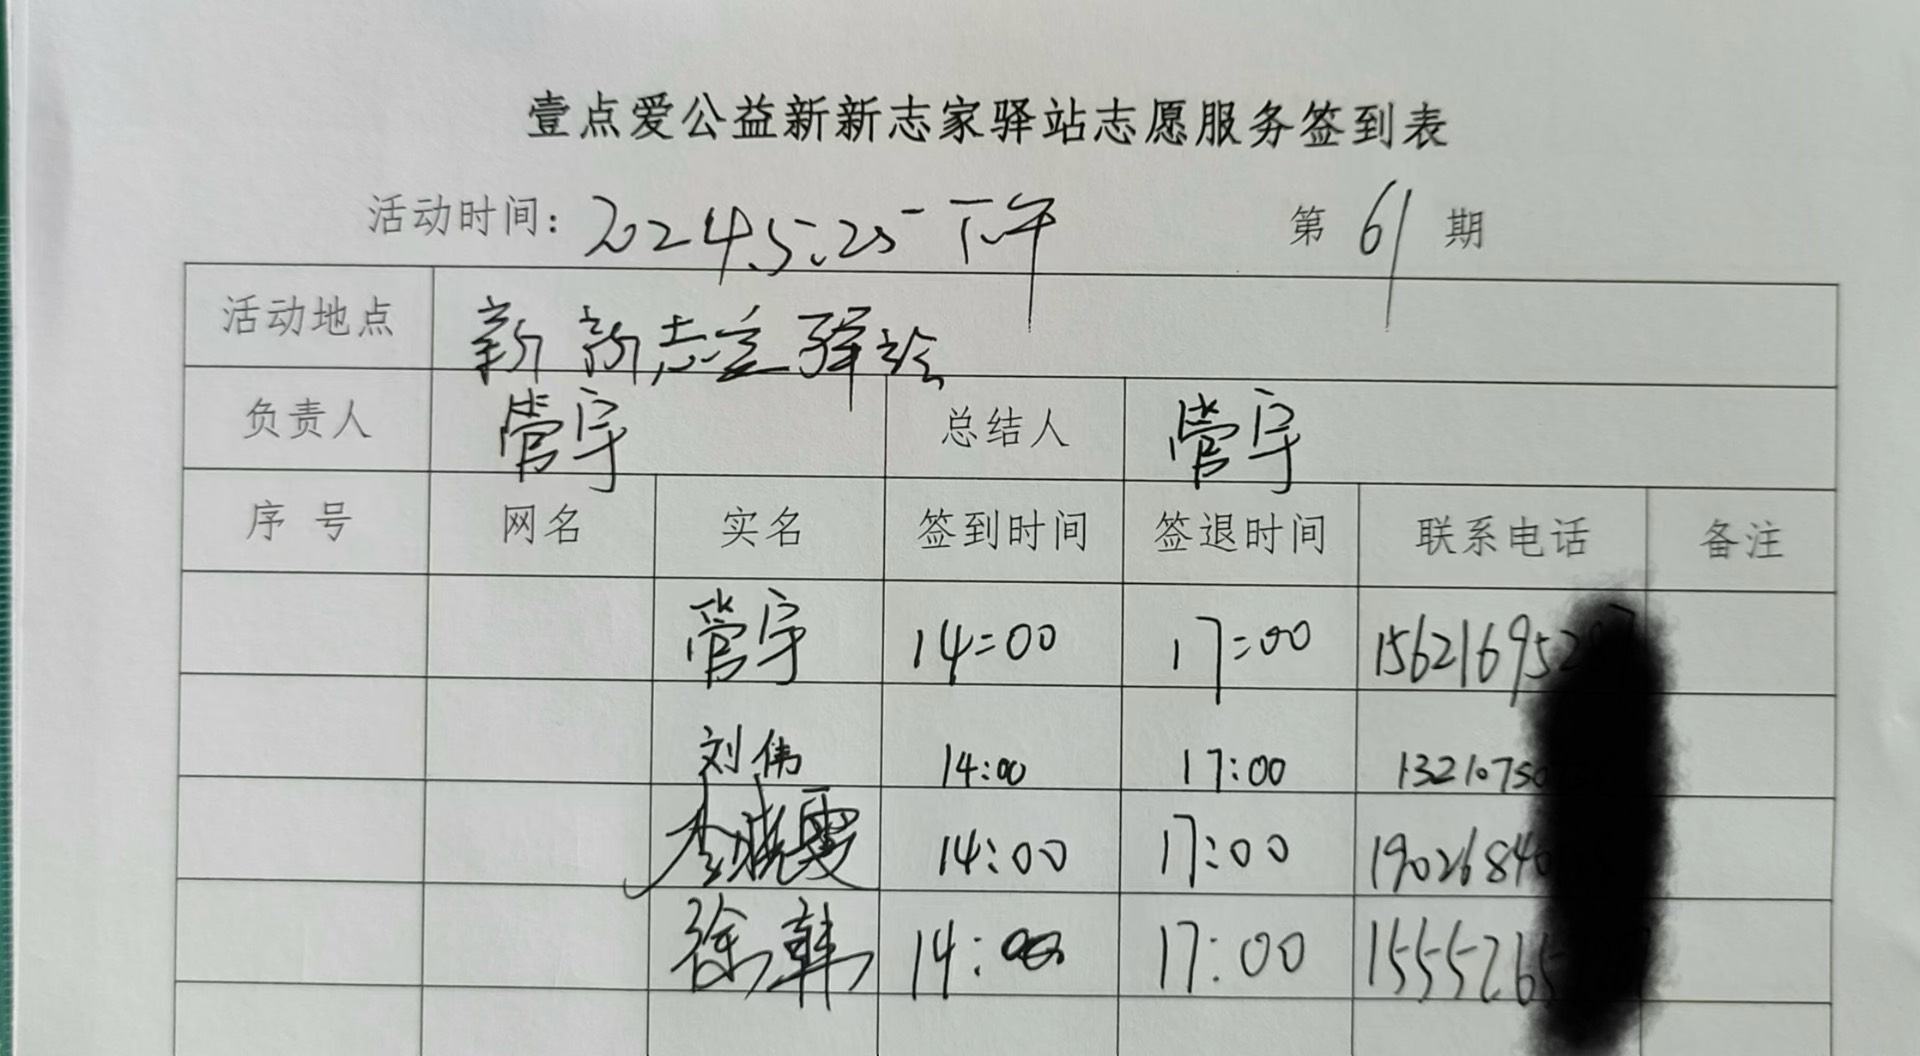 壹点爱公益新新志家驿站志愿服务签到表
活动时间: 2024.5.25 下午 第 61 期
活动地点 新新志家驿站
负责人 管宇 总结人 管宇
序号 网名 实名 签到时间 签退时间 联系电话 备注
管宇 14:00 17:00 156216952
刘伟 14:00 17:00 13210750
李晓雯 14:00 17:00 19026840
徐韩 14:00 17:00 15552765